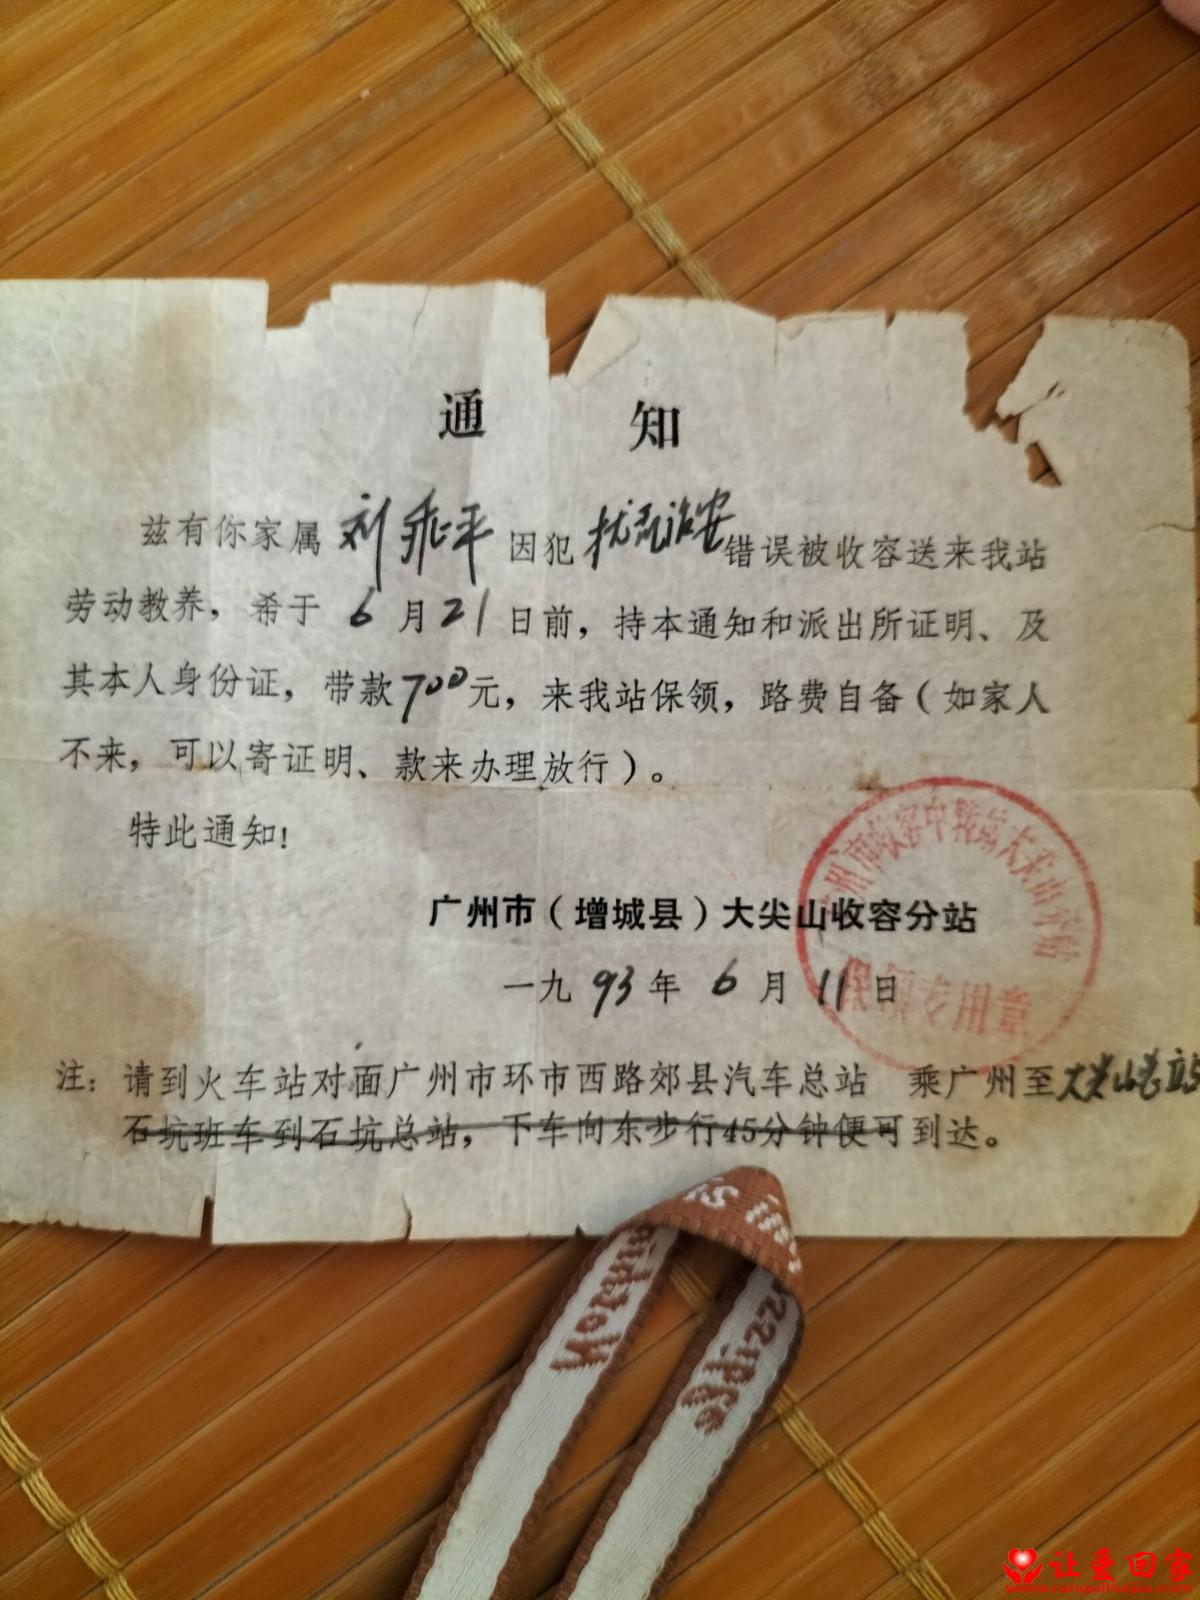 通 知
兹有你家属 刘乖平 因犯 扰乱治安 错误被收容送来我站
劳动教养，希于 6 月 21 日前，持本通知和派出所证明、及
其本人身份证，带款700元，来我站保领，路费自备（如家人
不来，可以寄证明、款来办理放行）。
特此通知！
广州市（增城县）大尖山收容分站
一九 93 年 6 月 11 日
州市收容中转站大尖山分站
保领专用章
注：请到火车站对面广州市环市西路郊县汽车总站 乘广州至大尖山
石坑班车到石坑总站，下车向东步行45分钟便可到达。
让爱回家